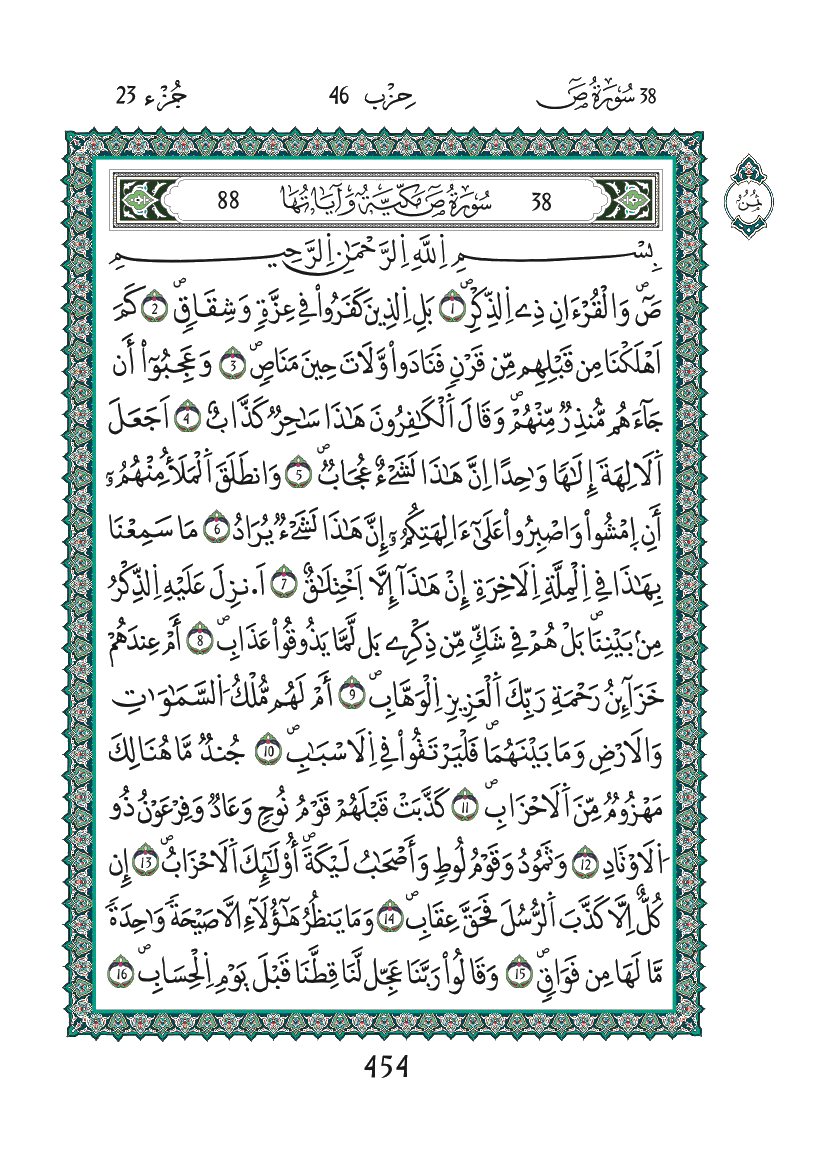 38 سُورَةُ صَٓ حِزْب 46 جُزْء 23
38 سُورَةُ صَٓ مَكِّيَّةٌ وَءَايَاتُهَا 88
ثُمُنُ
بِسْمِ اِ۬للَّهِ اِ۬لرَّحْمَٰنِ اِ۬لرَّحِيمِ
صَٓۖ وَالْقُرْءَانِ ذِے اِ۬لذِّكْرِۖ 1 بَلِ اِ۬لذِينَ كَفَرُواْ فِے عِزَّةٖ وَشِقَاقٖۖ 2 كَمَ
اَهْلَكْنَا مِن قَبْلِهِم مِّن قَرْنٖ فَنَادَواْ وَّلَاتَ حِينَ مَنَاصٖۖ 3 وَعَجِبُوٓاْ أَن
جَآءَهُم مُّنذِرٞ مِّنْهُمْۖ وَقَالَ اَ۬لْكَٰفِرُونَ هَٰذَا سَٰحِرٞ كَذَّابٌ 4 اَجَعَلَ
اَ۬لَالِهَةَ إِلَٰهاٗ وَٰحِداً اِنَّ هَٰذَا لَشَےْءٌ عُجَابٞۖ 5 وَانطَلَقَ اَ۬لْمَلَأُ مِنْهُمُۥٓ
أَنِ اِ۪مْشُواْ وَاصْبِرُواْ عَلَىٰٓ ءَالِهَتِكُمُۥٓ إِنَّ هَٰذَا لَشَےْءٞ يُرَادُ 6 مَا سَمِعْنَا
بِهَٰذَا فِے اِ۬لْمِلَّةِ اِ۬لَاخِرَةِ إِنْ هَٰذَآ إِلَّا اَ۪خْتِلَٰقٌ 7 اَ۟نزِلَ عَلَيْهِ اِ۬لذِّكْرُ
مِنۢ بَيْنِنَاۖ بَلْ هُمْ فِے شَكّٖ مِّن ذِكْرِے بَل لَّمَّا يَذُوقُواْ عَذَابِۖ 8 أَمْ عِندَهُمْ
خَزَآئِنُ رَحْمَةِ رَبِّكَ اَ۬لْعَزِيزِ اِ۬لْوَهَّابِۖ 9 أَمْ لَهُم مُّلْكُ اُ۬لسَّمَٰوَٰتِ
وَالَارْضِ وَمَا بَيْنَهُمَاۖ فَلْيَرْتَقُواْ فِے اِ۬لَاسْبَٰبِۖ 10 جُندٞ مَّا هُنَالِكَ
مَهْزُومٞ مِّنَ اَ۬لَاحْزَابِۖ 11 كَذَّبَتْ قَبْلَهُمْ قَوْمُ نُوحٖ وَعَادٞ وَفِرْعَوْنُ ذُو
اُ۬لَاوْتَادِ 12 وَثَمُودُ وَقَوْمُ لُوطٖ وَأَصْحَٰبُ لَيْكَةَۖ أُوْلَٰٓئِكَ اَ۬لَاحْزَابُۖ 13 إِن
كُلٌّ اِلَّا كَذَّبَ اَ۬لرُّسُلَ فَحَقَّ عِقَابِۖ 14 وَمَا يَنظُرُ هَٰٓؤُلَآءِ الَّا صَيْحَةٗ وَٰحِدَةٗ
مَّا لَهَا مِن فَوَاقٖۖ 15 وَقَالُواْ رَبَّنَا عَجِّل لَّنَا قِطَّنَا قَبْلَ يَوْمِ اِ۬لْحِسَابِۖ 16
454